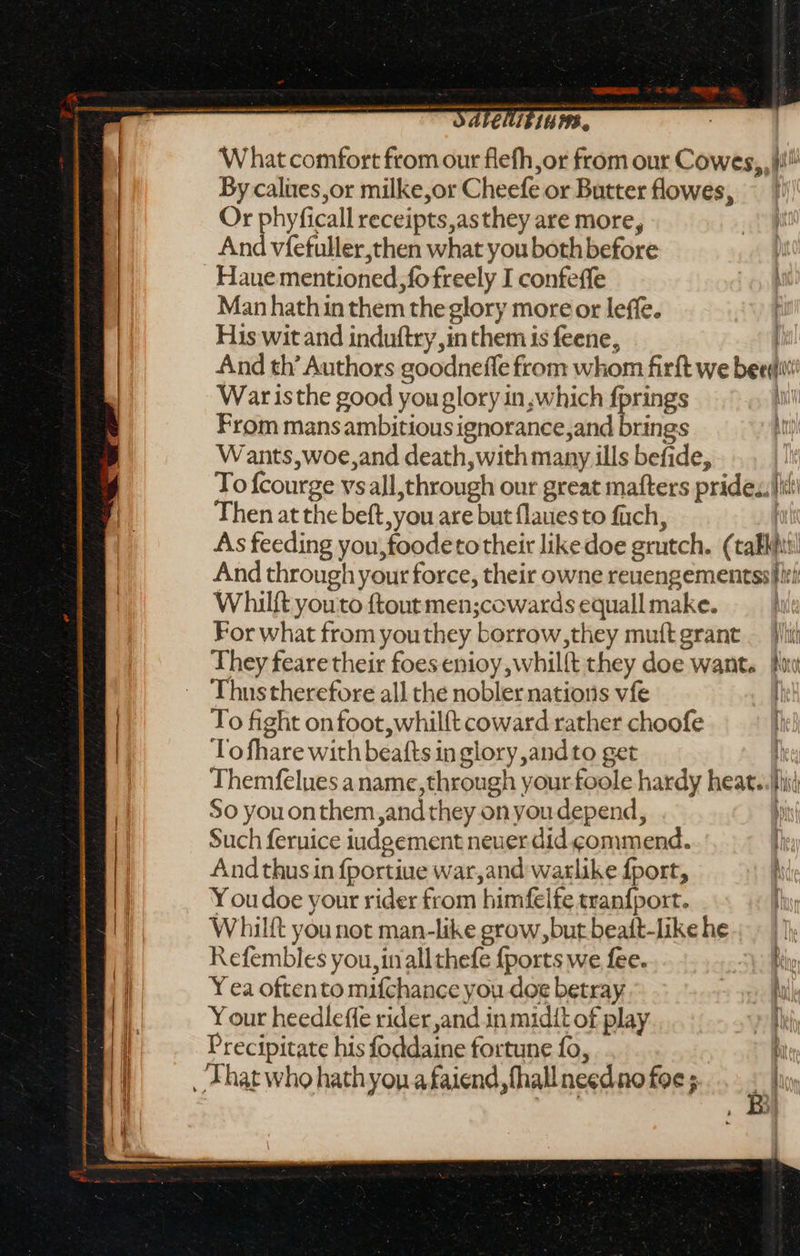 Satellitium.
What comfort from our flesh,or from our Cowes,
By calues,or milke,or Cheeſe or Butter flowes,
Or phyſicall receipts,as they are more,
And vſefuller,then what you both before
Haue mentioned,ſo freely I confeſſe
Man hath in them the glory more or leſſe.
His wit and induſtry,in them is ſeene,
And th' Authors goodneſſe from whom firſt we
War is the good you glory in,which ſprings
From mans ambitious ignorance,and brings
Wants,woe,and death,with many ills beſide,
To ſcourge vs all,through our great maſters pride.
Then at the beſt,you are but ſlaues to ſuch,
As feeding you,foode to their like doe grutch.
And through your force, their owne reuengements
Whilſt you to ſtout men;cowards equall make. (take
For what from you they borrow,they muſt grant
They feare their foes enioy,whilſt they doe want.
Thus therefore all the nobler nations vſe
To fight on foot,whilſt coward rather chooſe
To ſhare with beaſts in glory,and to get
Themſelues a name,through your foole hardy heat.
So you on them,and they on you depend,
Such ſeruice iudgement neuer did commend.
And thus in ſportiue war,and warlike ſport,
You doe your rider from himſelfe tranſport.
Whilſt you not man-like grow,but beaſt-like he
Reſembles you,in all theſe ſports we ſee.
Yea often to miſchance you doe betray
Your heedleſſe rider,and in midſt of play
Precipitate his ſoddaine fortune ſo,
That who hath you a faiend,ſhall need no foe;